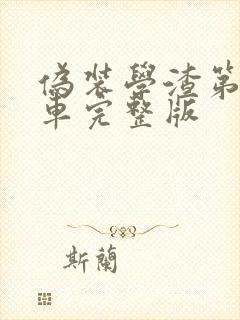 偽裝學渣第
車完整版
斯蘭